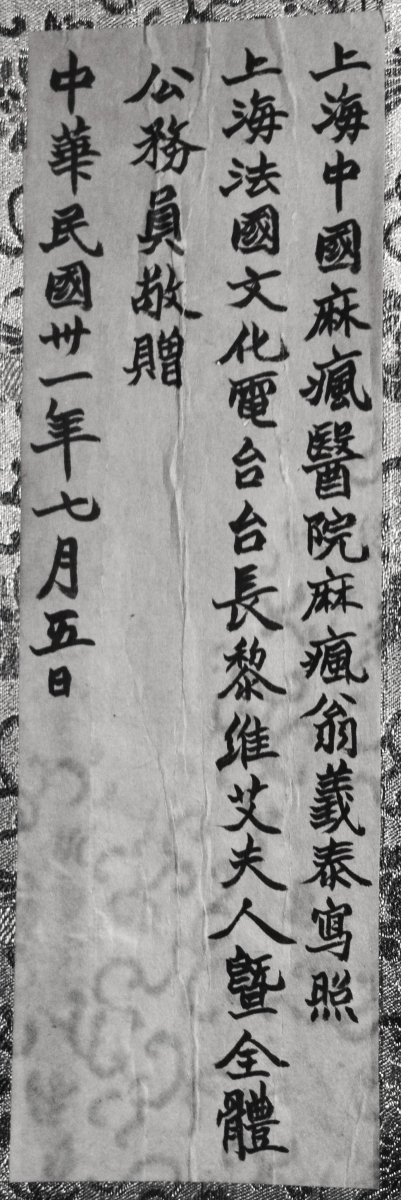 上海中國麻瘋醫院麻瘋翁義泰寫照
上海法國文化電台台長黎維艾夫人暨全體
公務員敬贈
中華民國卅一年七月五日